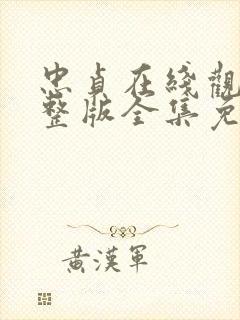 忠貞在綫觀
整版全集免
黃漢軍